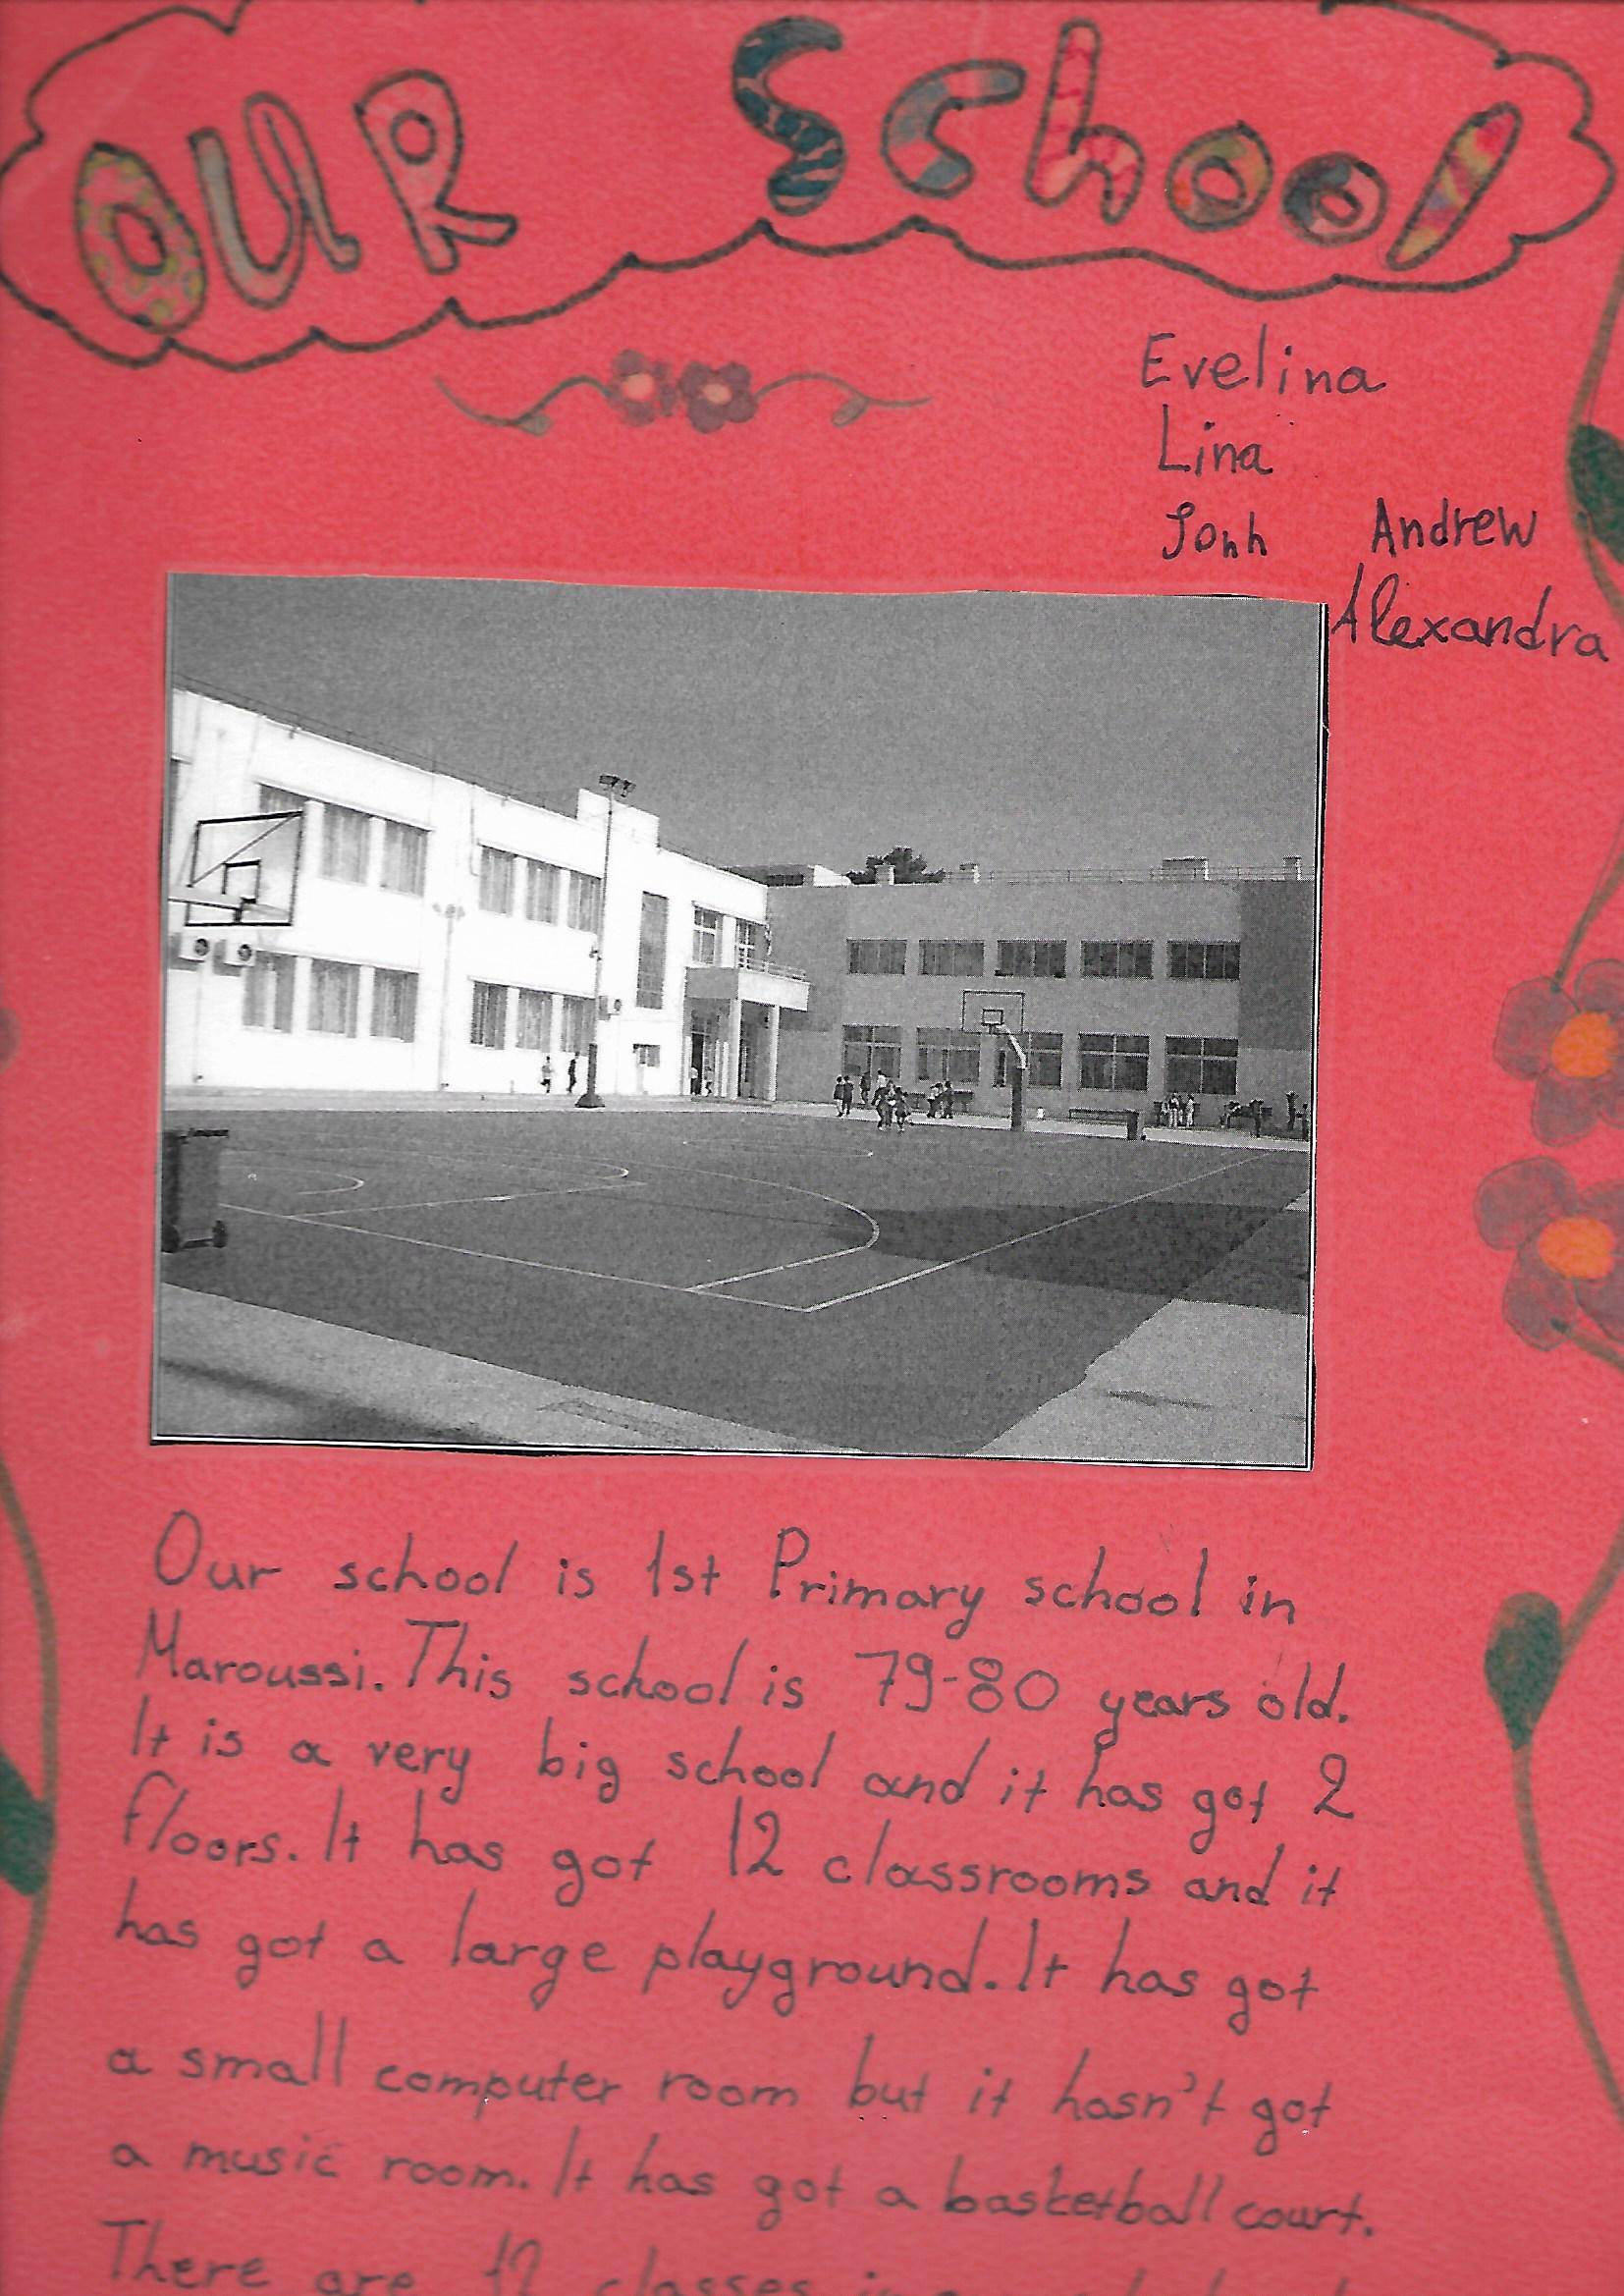 OUR School
Evelina
Lina
Jonh Andrew
Alexandra
Our school is 1st Primary school in
Maroussi. This school is 79-80 years old.
It is a very big school and it has got 2
floors. It has got 12 classrooms and it
has got a large playground. It has got
a small computer room but it hasn't got
a music room. It has got a basketball court.
There are 12 classes in